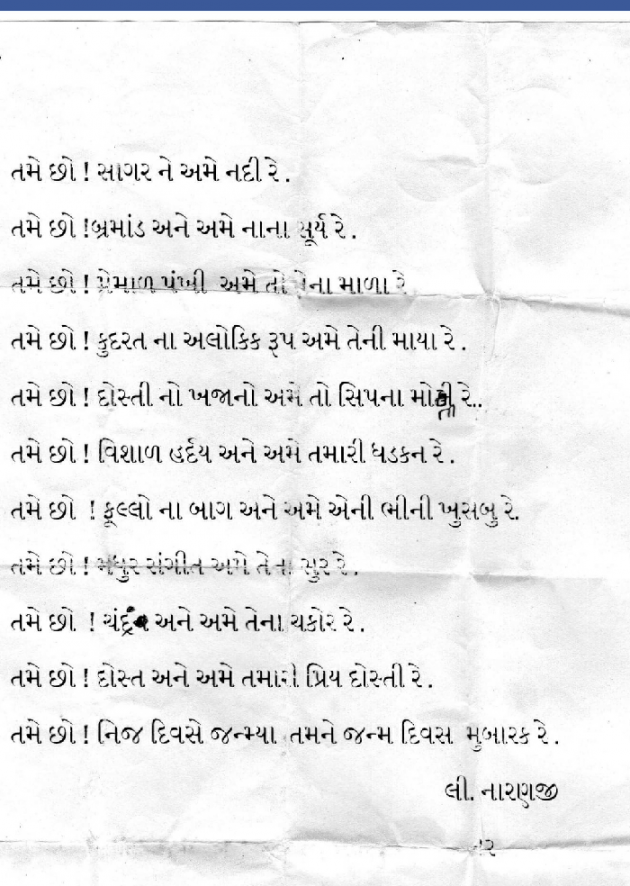 તમે છો ! સાગર ને અમે નદી રે .
તમે છો !બ્રમાંડ અને અમે નાના સૂર્ય રે .
તમે છો ! પ્રેમાળ પંખી અમે તો તેના માળા રે
તમે છો ! કુદરત ના અલોકિક રૂપ અમે તેની માયા રે .
તમે છો ! દોસ્તી નો ખજાનો અમે તો સિપના મોતી રે..
તમે છો ! વિશાળ હર્દય અને અમે તમારી ધડકન રે .
તમે છો ! ફૂલ્લો ના બાગ અને અમે એની ભીની ખુસબુ રે.
તમે છો ! મધુર સંગીત અમે તેના સુર રે .
તમે છો ! ચંદ્ર અને અમે તેના ચકોર રે .
તમે છો ! દોસ્ત અને અમે તમારી પ્રિય દોસ્તી રે .
તમે છો ! નિજ દિવસે જન્મ્યા તમને જન્મ દિવસ મુબારક રે .
લી. નારણજી